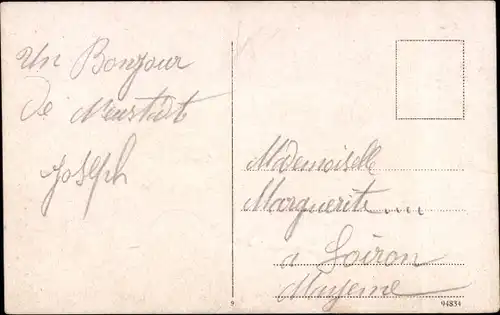 Un Bonjour
De Neustadt
Joseph
Mademoiselle
Marguerite...
a Loiron
Mayenne
9
94834